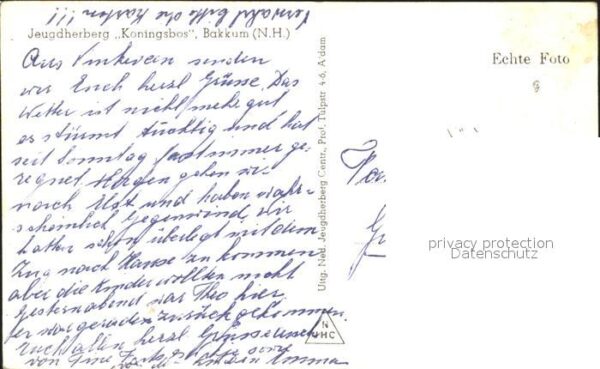 Verwahrt bitte die Karten!!!
Jeugdherberg „Koningsbos", Bakkum (N.H.)
Echte Foto
Aus Vinkeveen senden
wir Euch herzl Grüsse. Das
Wetter ist nicht mehr gut
es stürmt tüchtig und hat
seit Sonntag fast immer ge-
regnet Morgen gehen wir
nach Elst und haben wahr-
scheinlich Gegenwind, wir
hatten schon überlegt mit dem
Zug nach Hause zu kommen
aber die Kinder wollten nicht
Gestern abend war Theo hier,
er war geraden zurück gekommen.
Euch allen herzl Grüsse
von Tine
Emma
Uitg. Ned. Jeugdherberg Centr., Prof. Tulpstr. 4-6, A'dam
N
JHC
privacy protection
Datenschutz